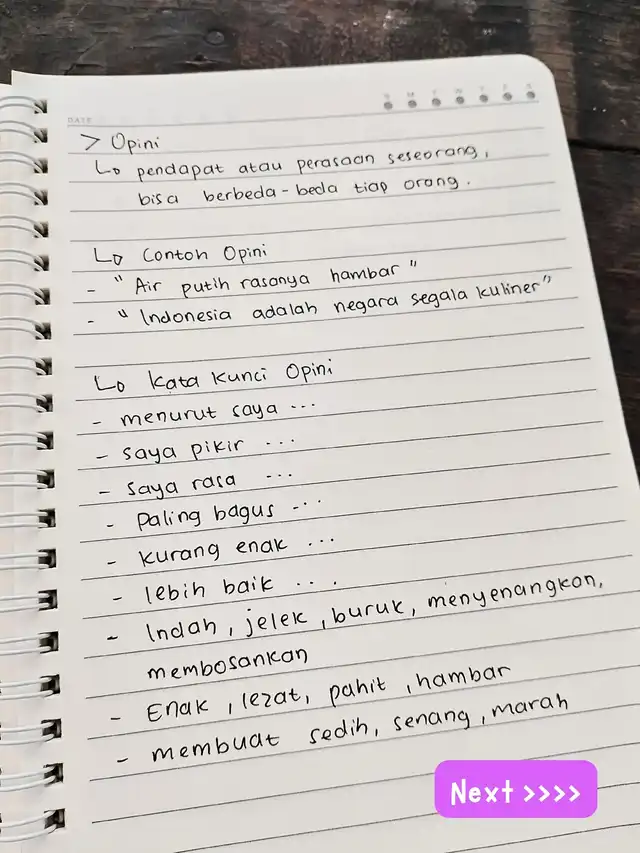 DATE
S M T W T F S
> Opini
↳ pendapat atau perasaan seseorang,
bisa berbeda-beda tiap orang.
↳ Contoh Opini
- " Air putih rasanya hambar "
- " Indonesia adalah negara segala kuliner"
↳ Kata Kunci Opini
- menurut saya ...
- saya pikir ...
- saya rasa ...
- Paling bagus ...
- Kurang enak ...
- lebih baik ...
- Indah, jelek, buruk, menyenangkan,
membosankan
- Enak, lezat, pahit, hambar
- membuat sedih, senang, marah
Next >>>>